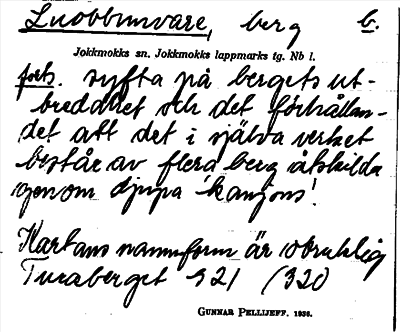 Luobbunvare, berg b.
Jokkmokks sn. Jokkmokks lappmarks tg. Nb l.
forts. syfta på bergets ut-
breddhet och det förhållan-
det att det i själva verket
består av flera berg åtskilda
genom djupa "kanjons"!
Kartans namnform är obruklig
Turaberget 921 (920
GUNNAR PELLIJEFF. 1936.